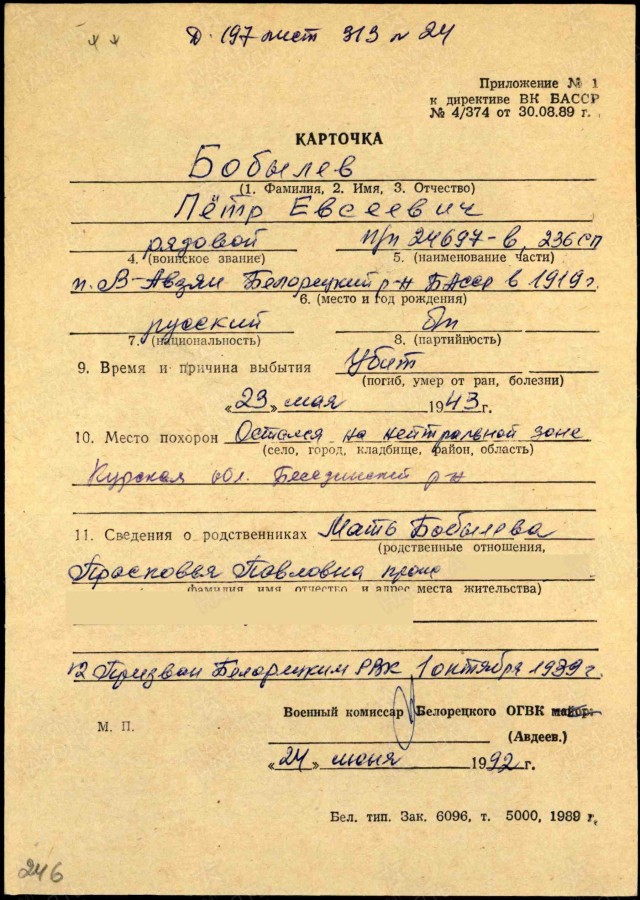 Д. 197 лист 313 № 24
Приложение № 1
к директиве ВК БАССР
№ 4/374 от 30.08.89 г.
КАРТОЧКА
Бобылев
(1. Фамилия, 2. Имя, 3. Отчество)
Пётр Евсеевич
рядовой п/п 24697-в, 236 сп
4. (воинское звание) 5. (наименование части)
п. В-Авзян Белорецкий р-н БАССР в 1919 г.
6. (место и год рождения)
русский б/п
7. (национальность) 8. (партийность)
9. Время и причина выбытия Убит
(погиб, умер от ран, болезни)
«23» мая 1943 г.
10. Место похорон Остался на нейтральной зоне
(село, город, кладбище, район, область)
Курская обл. Беседенский р-н
11. Сведения о родственниках Мать Бобылева
(родственные отношения,
Прасковья Павловна прож
фамилия имя отчество и адрес места жительства)
12 Призван Белорецким РВК 1 октября 1939 г.
Военный комиссар Белорецкого ОГВК майор
М. П. (Авдеев.)
«24» июня 1992 г.
Бел. тип. Зак. 6096, т. 5000, 1989 г.
246